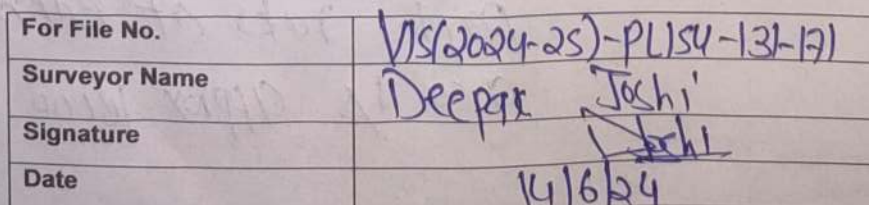 For File No. VIS(2024-25)-PL154-131-171
Surveyor Name Deepak Joshi
Signature Joshi
Date 14/6/24